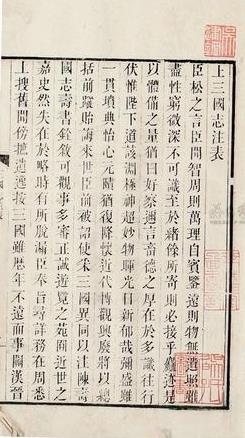 上三國志注表
臣松之言臣聞智周則萬理自賓鑒遠則物無遺照雖
盡性窮微深不可識至於緒餘所寄則必接乎麤迹是
以體備之量猶曰好察邇言畜德之厚在於多識往行
伏惟陛下道該淵極神超妙物暉光日新郁哉彌盛雖
一貫墳典怡心元賾猶復降懷近代博觀興廢將以總
括前蹤貽誨來世臣前被詔使采三國異同以注陳壽
國志壽書銓敘可觀事多審正誠遊覽之苑囿近世之
嘉史然失在於略時有所脫漏臣奉旨尋詳務在周悉
上搜舊聞傍摭遺逸按三國雖歷年不遠而事關漢晉